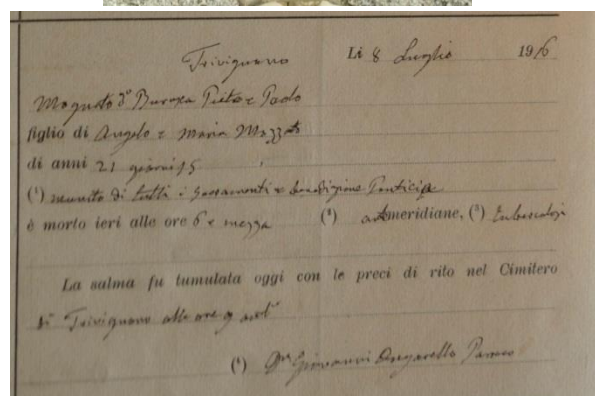 Trivignano Li 8 Luglio 1916
Pietro Paolo
figlio di Angelo e Maria Mozzato
di anni 21 giorni 15
(¹) munito di tutti i Sacramenti e benedizione Pontificia
è morto ieri alle ore 6 e mezza (²) antimeridiane, (³)
La salma fu tumulata oggi con le preci di rito nel Cimitero
di Trivignano alle ore 9 ant
(¹) Giovanni Parroco